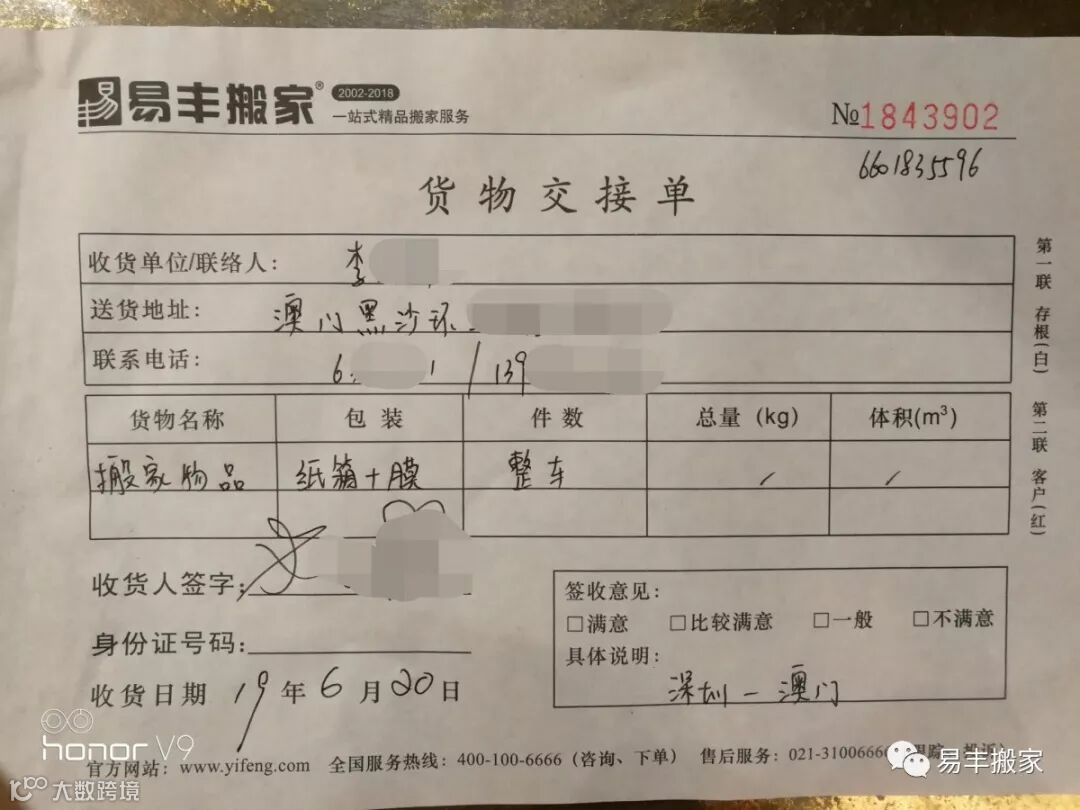 易 易丰搬家® 2002-2018
一站式精品搬家服务
№1843902
6601835596
货物交接单
收货单位/联络人： 李
送货地址： 澳门黑沙环
联系电话： 6 1 / 139
货物名称 包装 件数 总量（kg） 体积(m³)
搬家物品 纸箱+膜 整车 / /
收货人签字：
身份证号码：
收货日期 19年6月20日
签收意见：
□满意 □比较满意 □一般 □不满意
具体说明：
深圳—澳门
第一联 存根(白) 第二联 客户(红)
官方网站：www.yifeng.com 全国服务热线：400-100-6666（咨询、下单） 售后服务：021-3100666
honor V9
大数跨境
易丰搬家